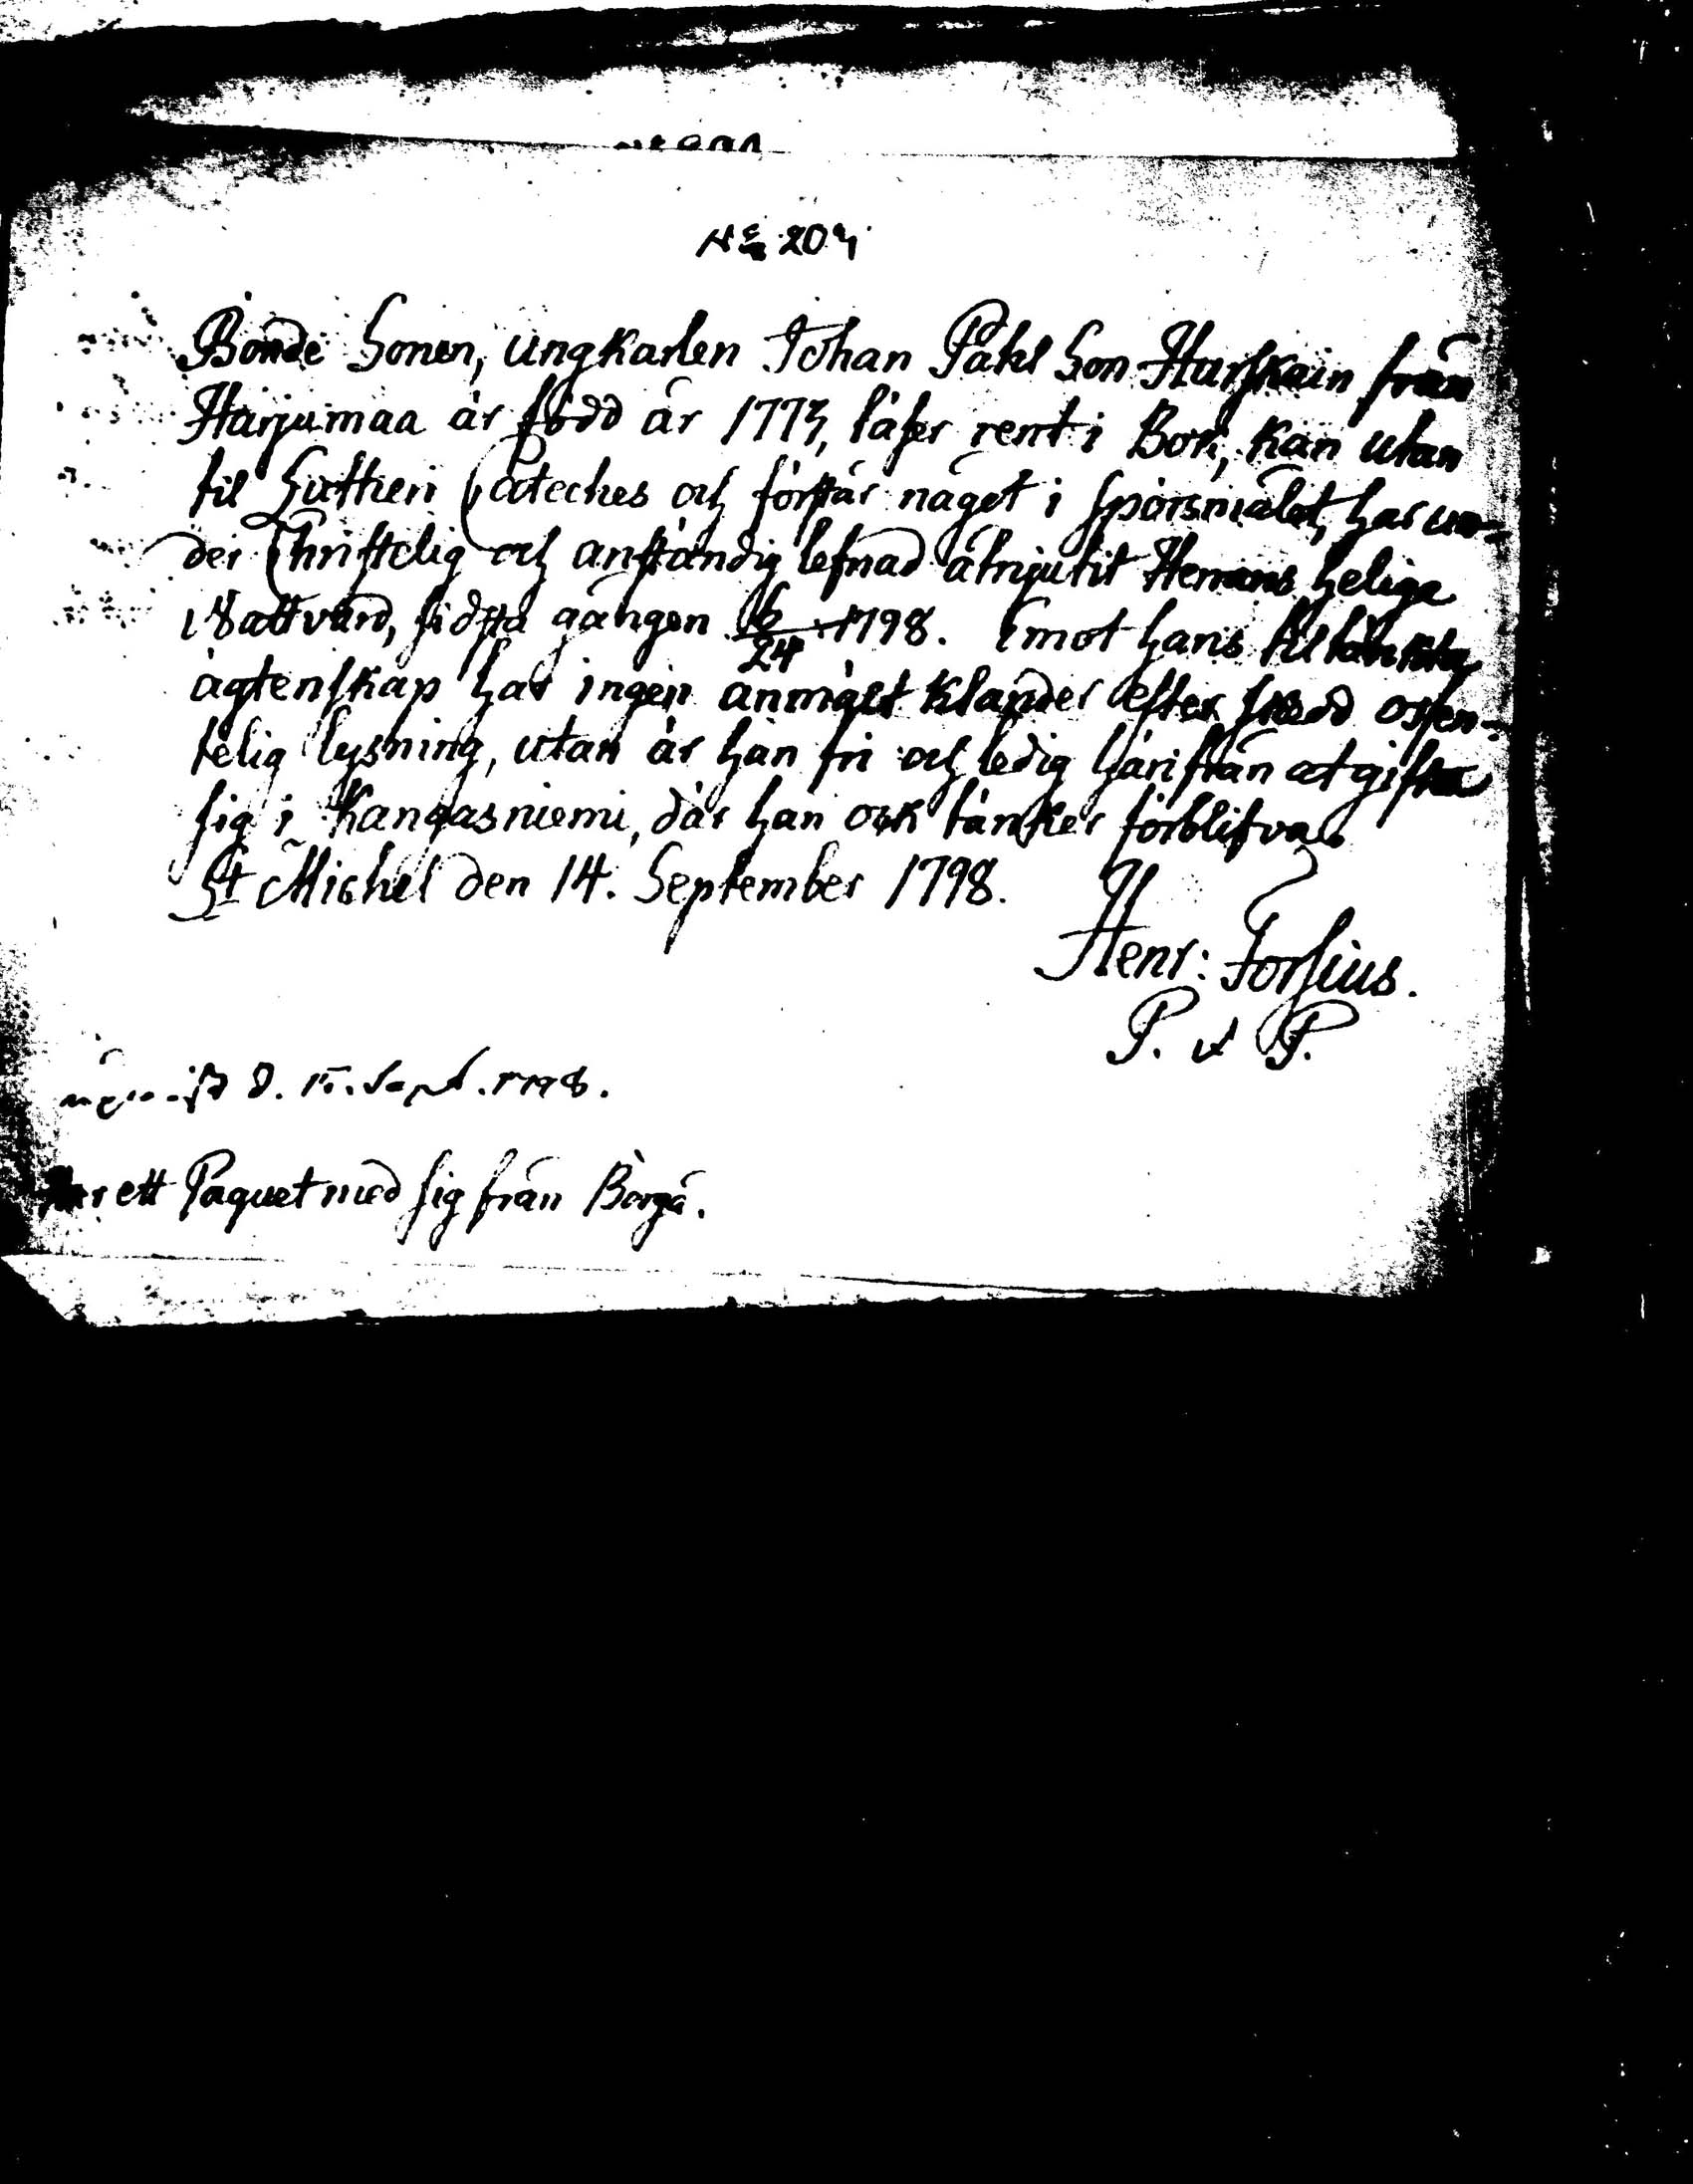 No 209
Bonde Sonen, ungkarlen Johan Påhl Son Harskain från
Harjumaa är född år 1773, läser rent i Bok, kan utan
til Lutheri Cateches och förstår något i spörsmålet, har un-
der Christelig och anständig lefnad åtnjutit Herrans heliga
Nattvard, sidsta gången 6/24 1798. Emot hans tiltänkta
ägtenskap har ingen anmält klander efter skedd offen-
telig lysning, utan är han fri och ledig härifrån at gifta
sig i Kangasniemi, där han ock tänker förblifva.
St Michel den 14. September 1798.
Henr: Forsius.
P. & P.
d. 15. Sept. 1798.
ett Paquet med sig från Borgå.